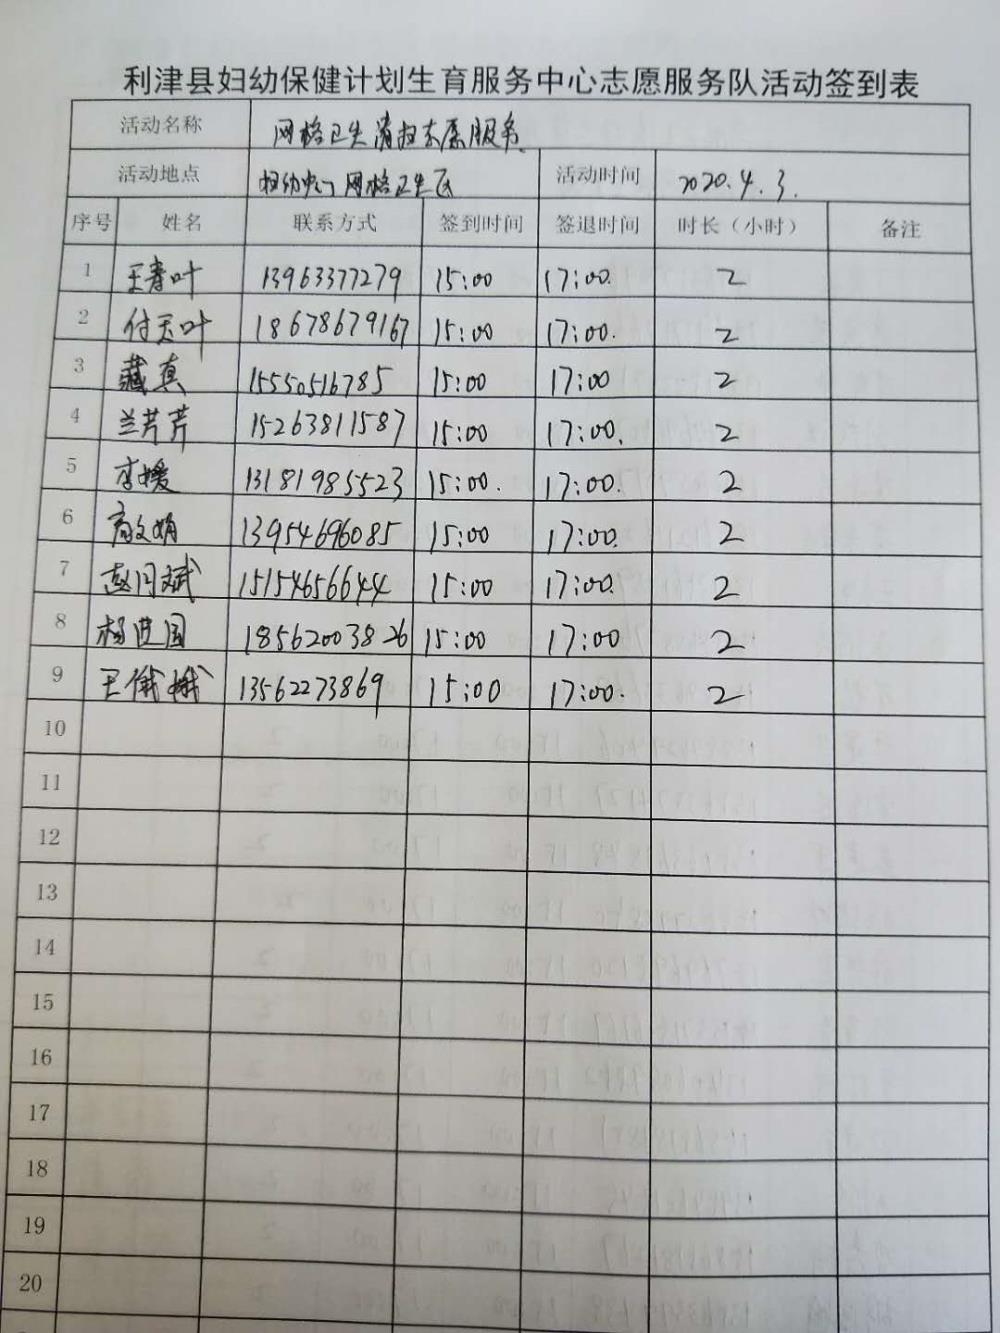 利津县妇幼保健计划生育服务中心志愿服务队活动签到表
活动名称 网格卫生清扫志愿服务
活动地点 妇幼中心网格卫生区 活动时间 2020.4.3.
序号 姓名 联系方式 签到时间 签退时间 时长（小时） 备注
1 王春叶 13963377279 15:00 17:00. 2
2 付天叶 18678679167 15:00 17:00. 2
3 藏真 15550516785 15:00 17:00 2
4 兰芹芹 15263811587 15:00 17:00. 2
5 李媛 13181985523 15:00. 17:00. 2
6 高文娟 13954696085 15:00 17:00. 2
7 赵同斌 15154656644 15:00 17:00. 2
8 杨进国 18562003826 15:00 17:00. 2
9 王俄娥 13562273869 15:00 17:00. 2
10
11
12
13
14
15
16
17
18
19
20